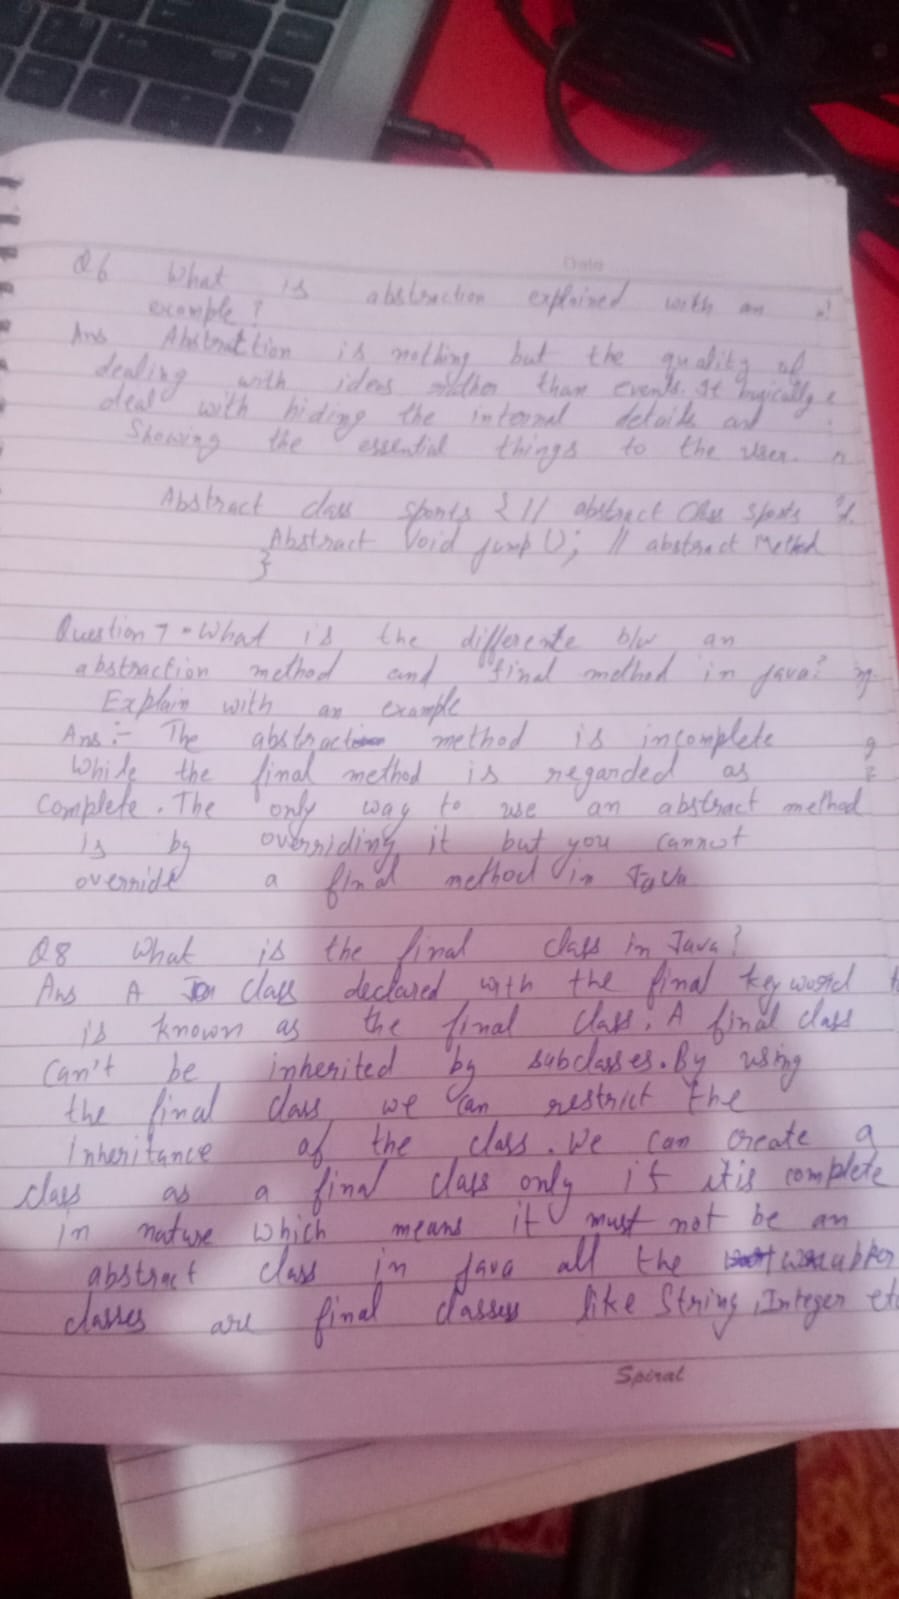 Date
Q6 What is abstraction explained with an
example?
Ans Abstraction is nothing but the quality of
dealing with ideas rather than events. It basically
deal with hiding the internal details and
Showing the essential things to the user.
Abstract class sports { // abstract Class Sports
Abstract Void jump (); // abstract Method
}
Question 7 - What is the difference b/w an
abstraction method and final method in java?
Explain with an example
Ans:- The abstract method is incomplete
While the final method is regarded as
Complete. The only way to use an abstract method
is by overriding it but you cannot
override a final method in Java
Q8 What is the final class in Java?
Ans A class declared with the final keyword
is known as the final class. A final class
Can't be inherited by subclasses. By using
the final class we can restrict the
Inheritance of the class. We can create a
class as a final class only if it is complete
in nature which means it must not be an
abstract class in java all the
classes are final classes like String, Integer etc
Spiral